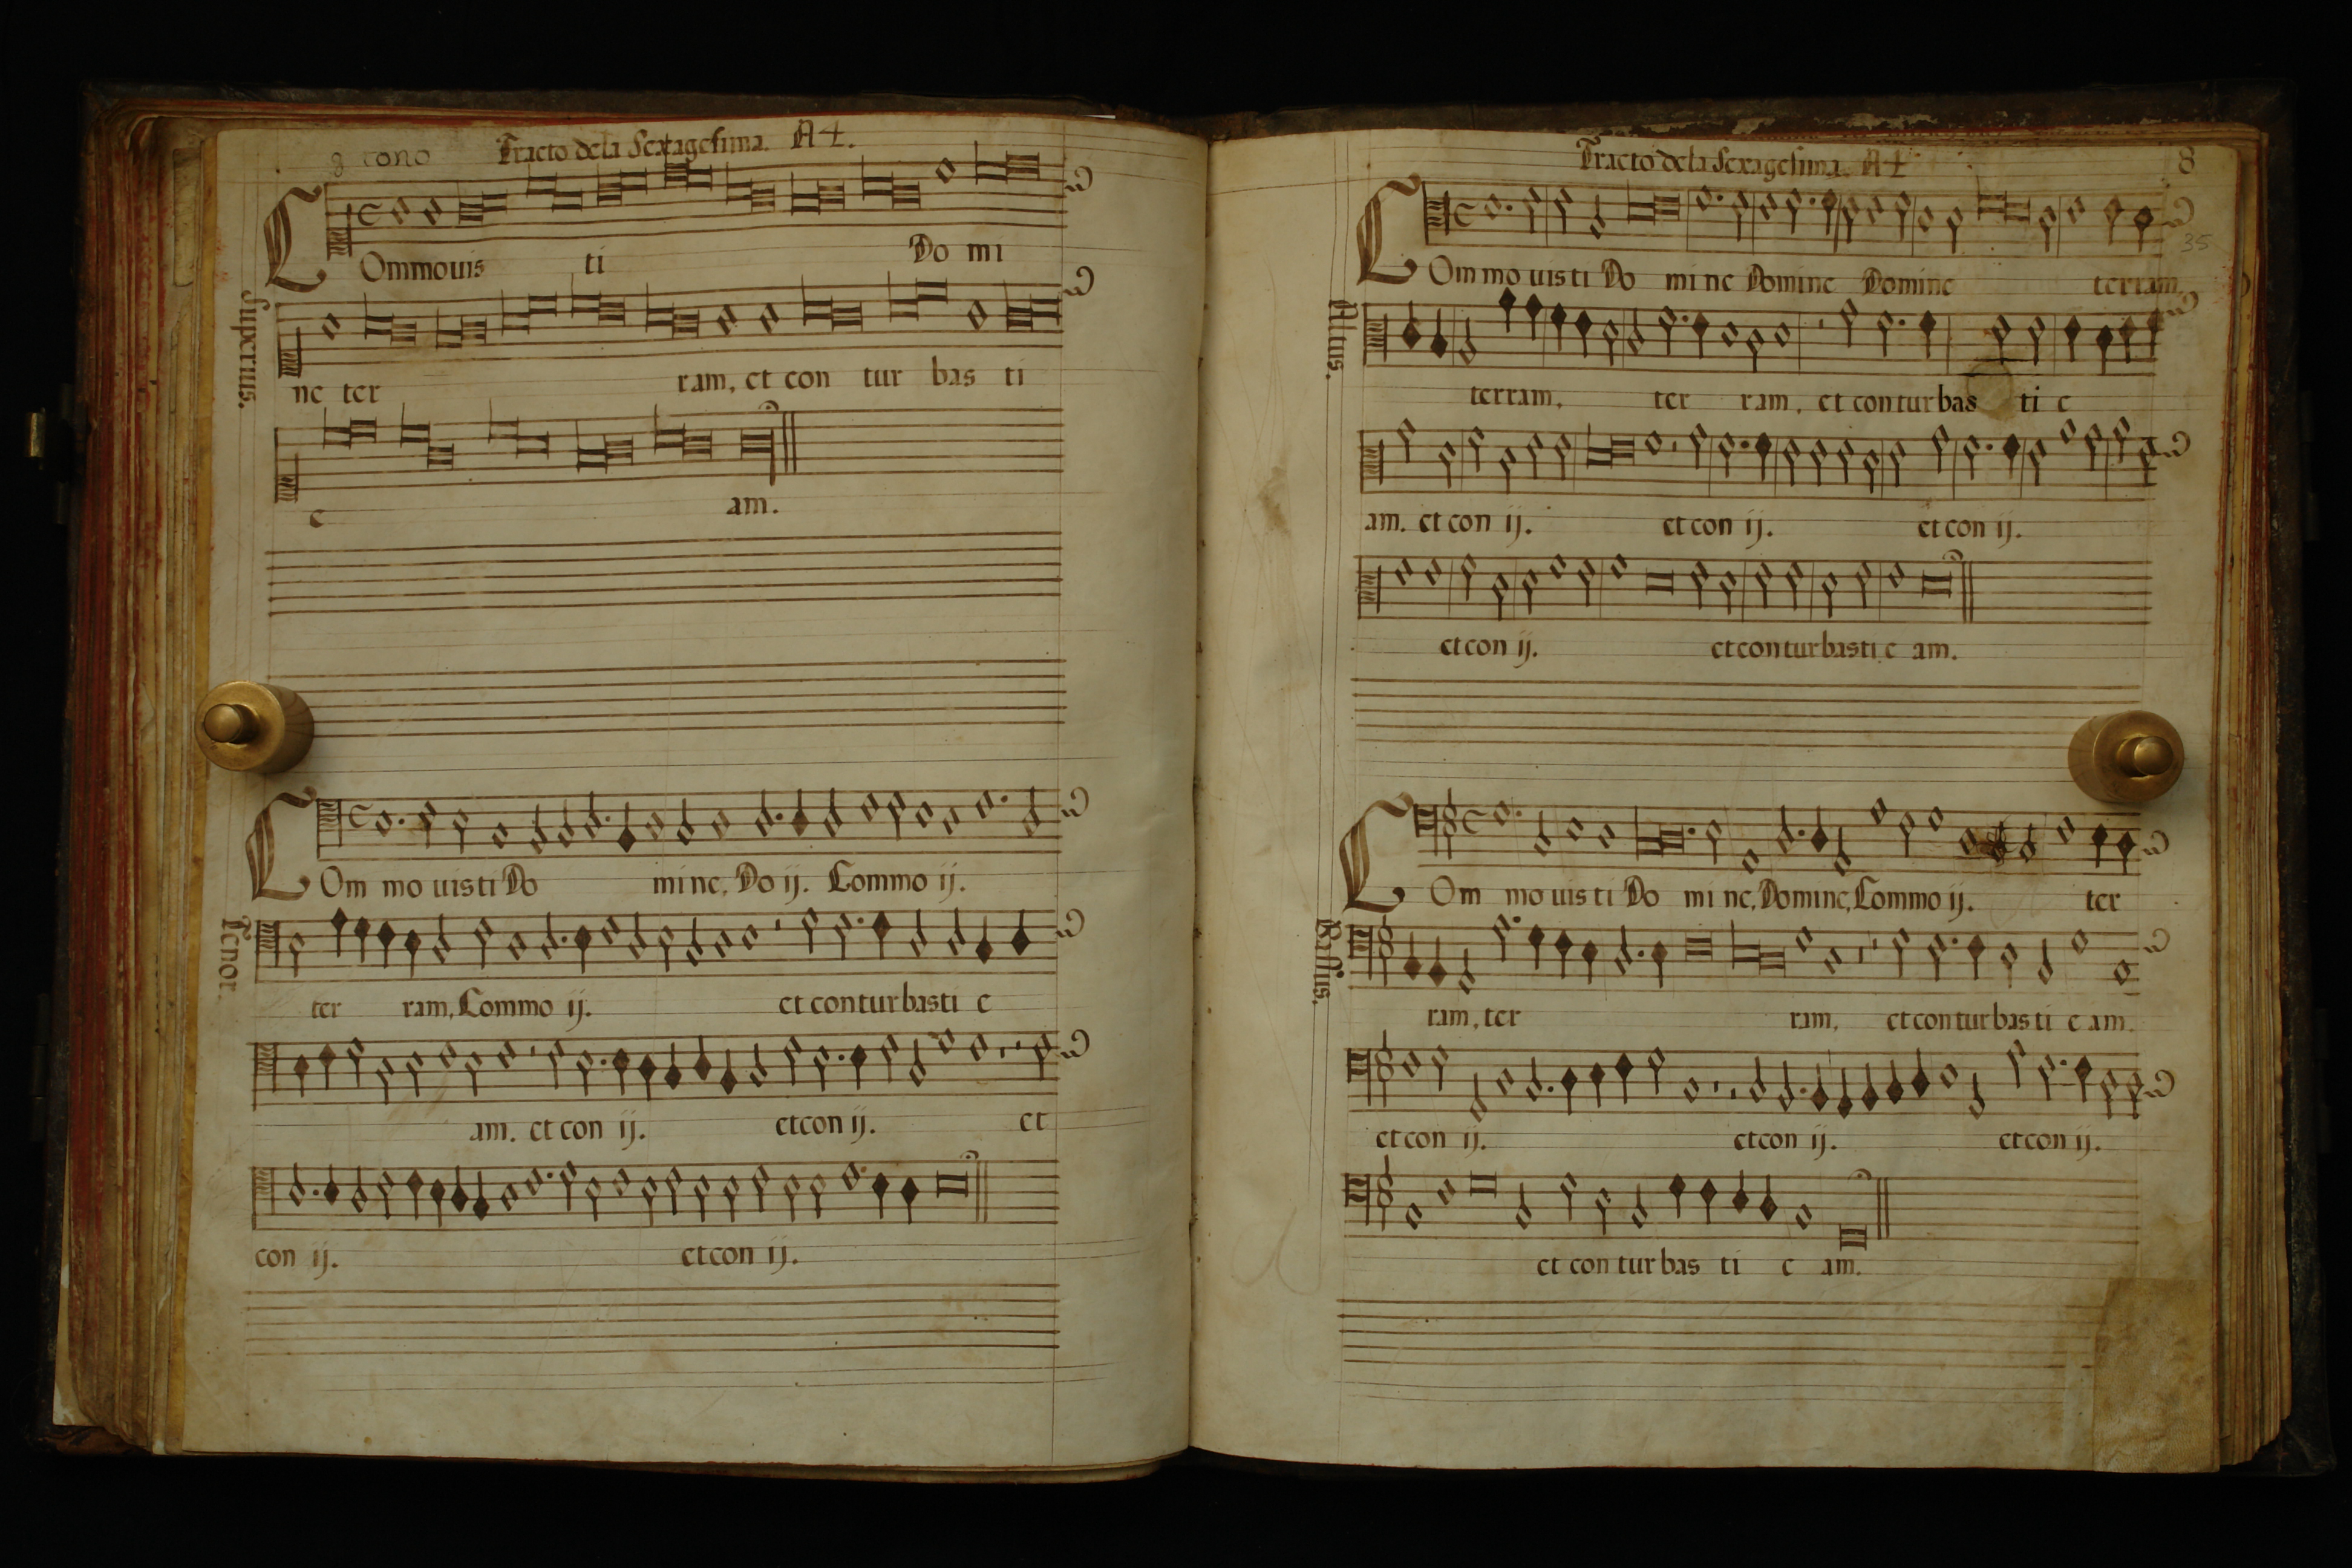 8 tono Tracto dela Sexagesima. A4.
COmmouis ti Do mi
Superius.
ne ter ram, et con tur bas ti
e am.
COm mo uis ti Do mi ne, Do ij. Commo ij.
Tenor.
ter ram, Commo ij. et con tur basti e
am. et con ij. et con ij. et
con ij. et con ij.
Tracto dela Sexagesima. A4 8
35
COm mo uis ti Do mi ne Domine Domine terram,
Altus.
terram, ter ram, et con tur bas ti e
am. et con ij. et con ij. et con ij.
et con ij. et con tur bas ti e am.
COm mo uis ti Do mi ne, Domine, Commo ij. ter
Bassus.
ram, ter ram, et con tur bas ti e am.
et con ij. et con ij. et con ij.
et con tur bas ti e am.